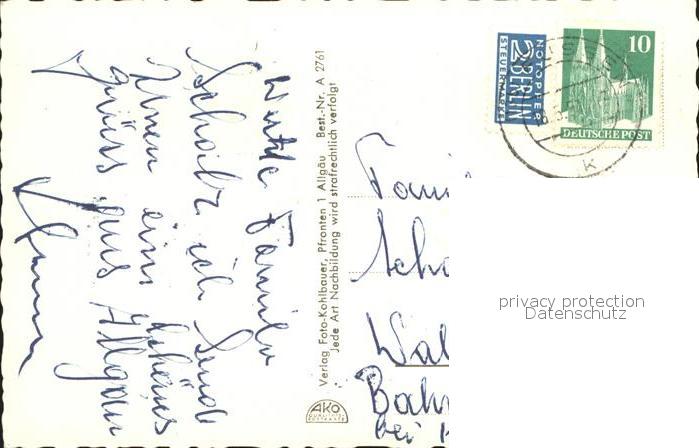 Werte Familie
Schatz ich Sende
Ihnen ein schönes
gruss aus Allgäu
Verlag Foto-Kohlbauer, Pfronten 1 Allgäu Best.-Nr. A 2761
Jede Art Nachbildung wird strafrechtlich verfolgt
AKO
NOTOPFER
2 BERLIN
STEUERMARKE
10
DEUTSCHE POST
k
Fami
Scha
Wal
Bah
bei
privacy protection
Datenschutz